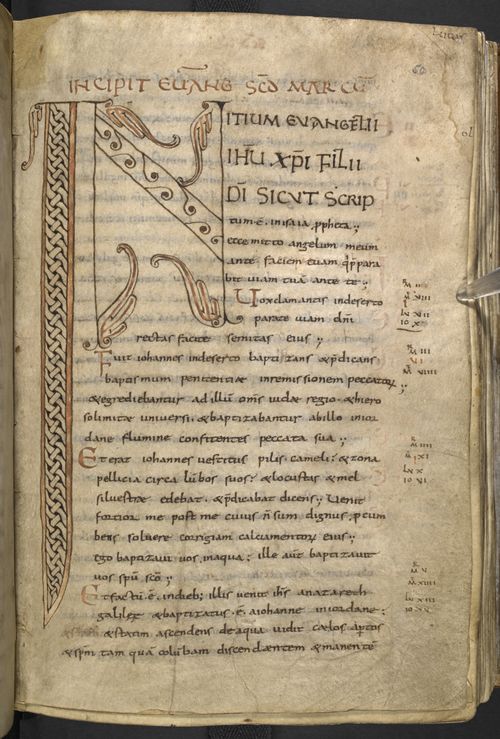 INCIPIT EU̅ANG SCD̅ MARCU̅
INITIUM EVANGELII
IHU̅ XPI̅ FILII
DI̅ SICVT SCRIP
tum · e̅ · in isaia p̱pheta ;
ecce mitto angelum meum
ante faciem tuam
bit uiam tua̅ ante te ;
Uox clamantis in deserto
parate uiam dn̅i
rectas facite semitas eius ;
Fuit iohannes in deserto baptizans & p̱dicans
baptismum penitentiae in remissionem peccatoꝝ ;
& egrediebantur ad illu̅ om̅s iudae regio · & hiero
solimitae uniuersi · & baptizabantur ab illo in ior
dane flumine confitentes peccata sua ;
Et erat iohannes uestitus pilis cameli · & zona
pellicia circa lu̅bos suos · & locustas & mel
siluestrae edebat · & p̱dicabat dicens ; Uenit
fortior me post me cuius n̅ sum dignus · p̱cum
bens soluere corrigiam calciamentoꝝ eius ;
ego baptizaui uos in aqua ; ille aut̅ baptizauit
uos spu̅ sco̅ ;
Et factu̅ · e̅ · in dieb; illis uenit ih̅s a nazareth
galileae & baptizatus · e̅ · a iohanne in iordane ;
& statim ascendens de aqua uidit caelos aꝑtos
& sp̅m tam qua̅ colu̅bam discendaentem & manente̅
60
M II
M XIII
L XII
IO X
M III
VI
M VIII
M IIII
M XI
L X
IO VI
M V
M XIII
L XIII
IO XV